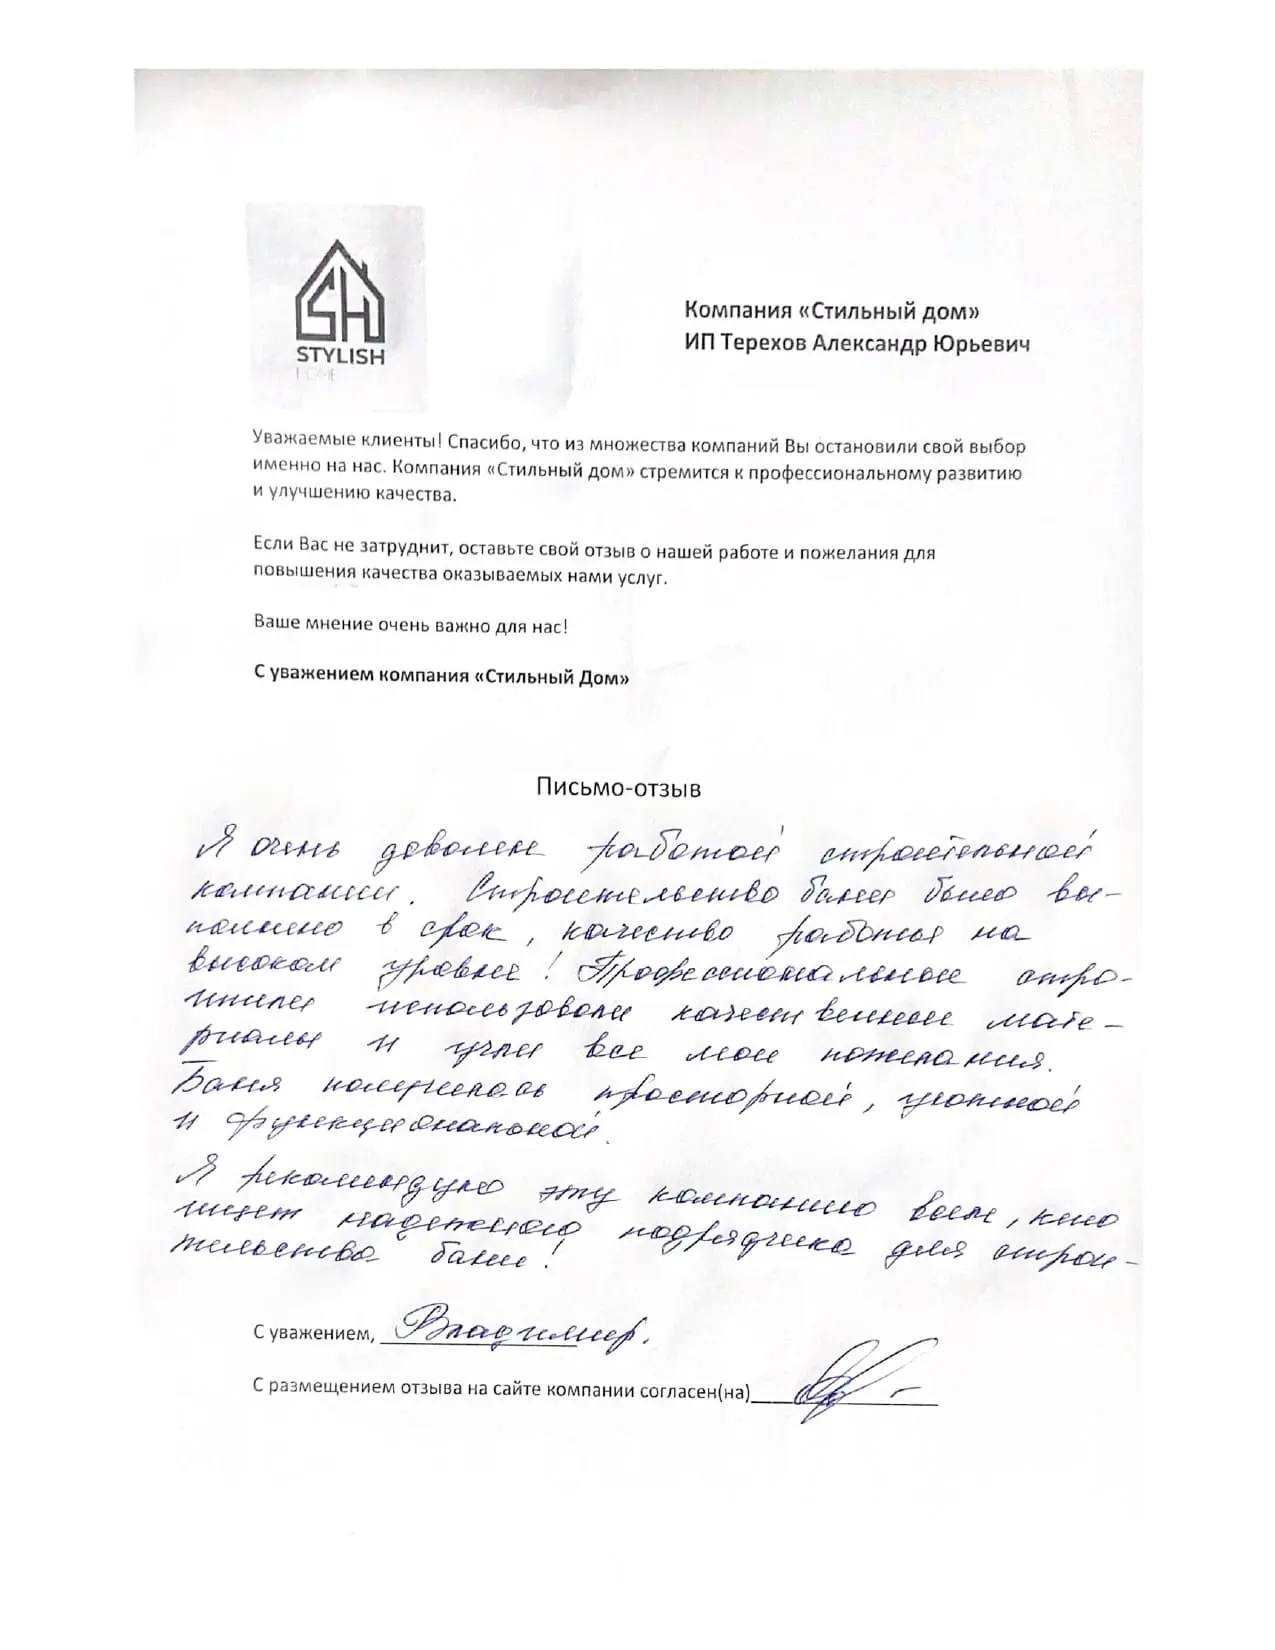 SH
STYLISH
HOME
Компания «Стильный дом»
ИП Терехов Александр Юрьевич
Уважаемые клиенты! Спасибо, что из множества компаний Вы остановили свой выбор
именно на нас. Компания «Стильный дом» стремится к профессиональному развитию
и улучшению качества.
Если Вас не затруднит, оставьте свой отзыв о нашей работе и пожелания для
повышения качества оказываемых нами услуг.
Ваше мнение очень важно для нас!
С уважением компания «Стильный Дом»
Письмо-отзыв
Я очень доволен работой строительной
компании. Строительство бани было вы-
полнено в срок, качество работы на
высоком уровне! Профессиональные стро-
ители использовали качественные мате-
риалы и учли все мои пожелания.
Баня получилась просторной, уютной
и функциональной.
Я рекомендую эту компанию всем, кто
ищет надежного подрядчика для строи-
тельства бани!
С уважением, Владимир.
С размещением отзыва на сайте компании согласен(на)